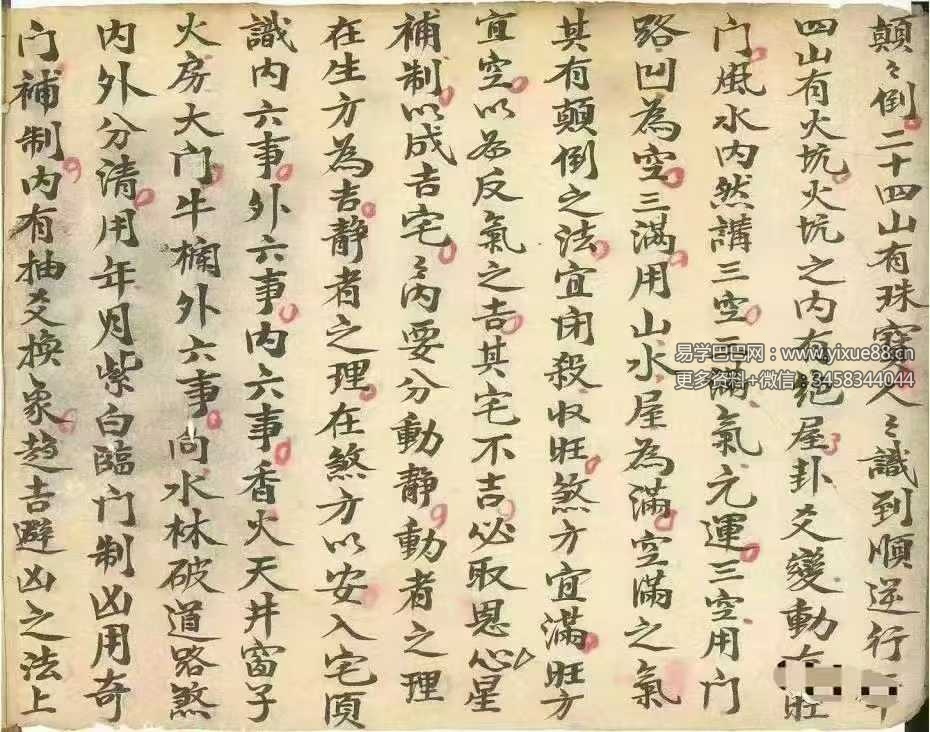 顛〻倒二十四山有珠寶人〻識到順逆行二十
四山有火坑火坑之内有絕屋卦爻變動有旺
门風水内然講三空三滿氣元運三空用门
路凹為空三滿用山水屋為滿空滿之氣
其有顛倒之法宜闭殺収旺煞方宜滿旺方
宜空以為反氣之吉其宅不吉必取恩星
補制以成吉宅〻内要分動靜動者之理
在生方為吉靜者之理在煞方以安入宅須
識内六事外六事内六事香火天井窗子
火房大门牛欄外六事向水林破道路煞
内外分清用年月紫白臨门制凶用奇
门補制内有抽爻換象趋吉避凶之法上
易学巴巴网：www.yixue88.cn
更多资料+微信：3458344044